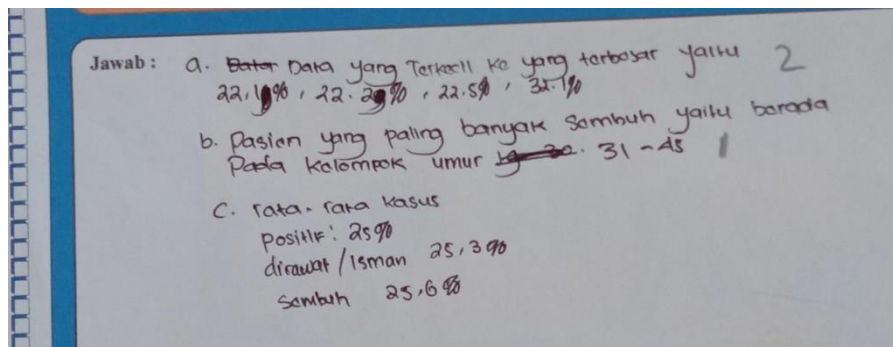 Jawab : a. Data yang Terkecil ke yang terbesar yaitu 2
22.1%, 22.2%, 22.5%, 32.1%
b. Pasien yang paling banyak Sembuh yaitu berada
Pada Kelompok umur 31-45 1
C. rata-rata kasus
Positif: 25%
dirawat/Isman 25,3%
Sembuh 25,6%